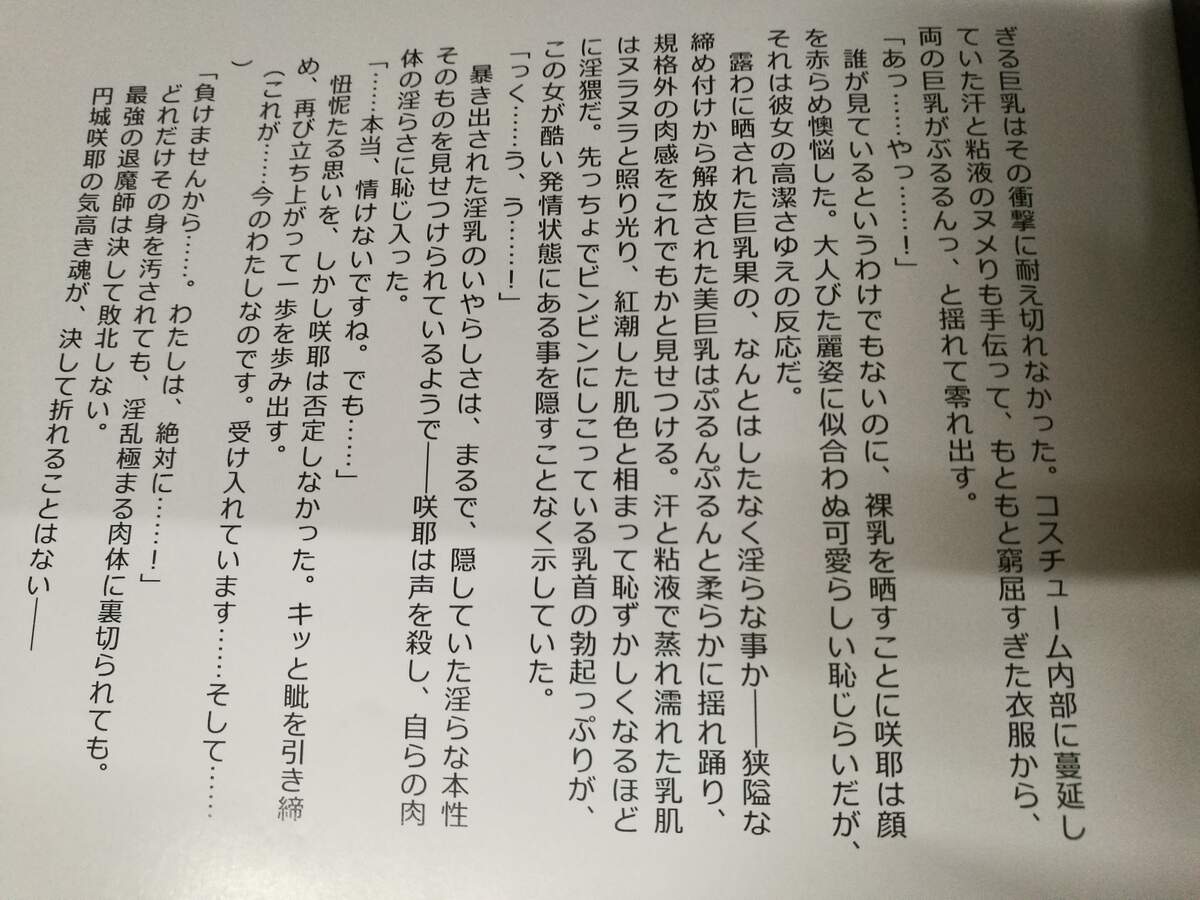 ぎる巨乳はその衝撃に耐え切れなかった。コスチューム内部に蔓延し
ていた汗と粘液のヌメりも手伝って、もともと窮屈すぎた衣服から、
両の巨乳がぶるるんっ、と揺れて零れ出す。
「あっ……やっ……！」
誰が見ているというわけでもないのに、裸乳を晒すことに咲耶は顔
を赤らめ懊悩した。大人びた麗姿に似合わぬ可愛らしい恥じらいだが、
それは彼女の高潔さゆえの反応だ。
露わに晒された巨乳果の、なんとはしたなく淫らな事か――狭隘な
締め付けから解放された美巨乳はぷるんぷるんと柔らかに揺れ踊り、
規格外の肉感をこれでもかと見せつける。汗と粘液で蒸れ濡れた乳肌
はヌラヌラと照り光り、紅潮した肌色と相まって恥ずかしくなるほど
に淫猥だ。先っちょでビンビンにしこっている乳首の勃起っぷりが、
この女が酷い発情状態にある事を隠すことなく示していた。
「っく……う、う……！」
暴き出された淫乳のいやらしさは、まるで、隠していた淫らな本性
そのものを見せつけられているようで――咲耶は声を殺し、自らの肉
体の淫らさに恥じ入った。
「……本当、情けないですね。でも……」
忸怩たる思いを、しかし咲耶は否定しなかった。キッと眦を引き締
め、再び立ち上がって一歩を歩み出す。
（これが……今のわたしなのです。受け入れています……そして……
）
「負けませんから……。わたしは、絶対に……！」
どれだけその身を汚されても、淫乱極まる肉体に裏切られても。
最強の退魔師は決して敗北しない。
円城咲耶の気高き魂が、決して折れることはない――